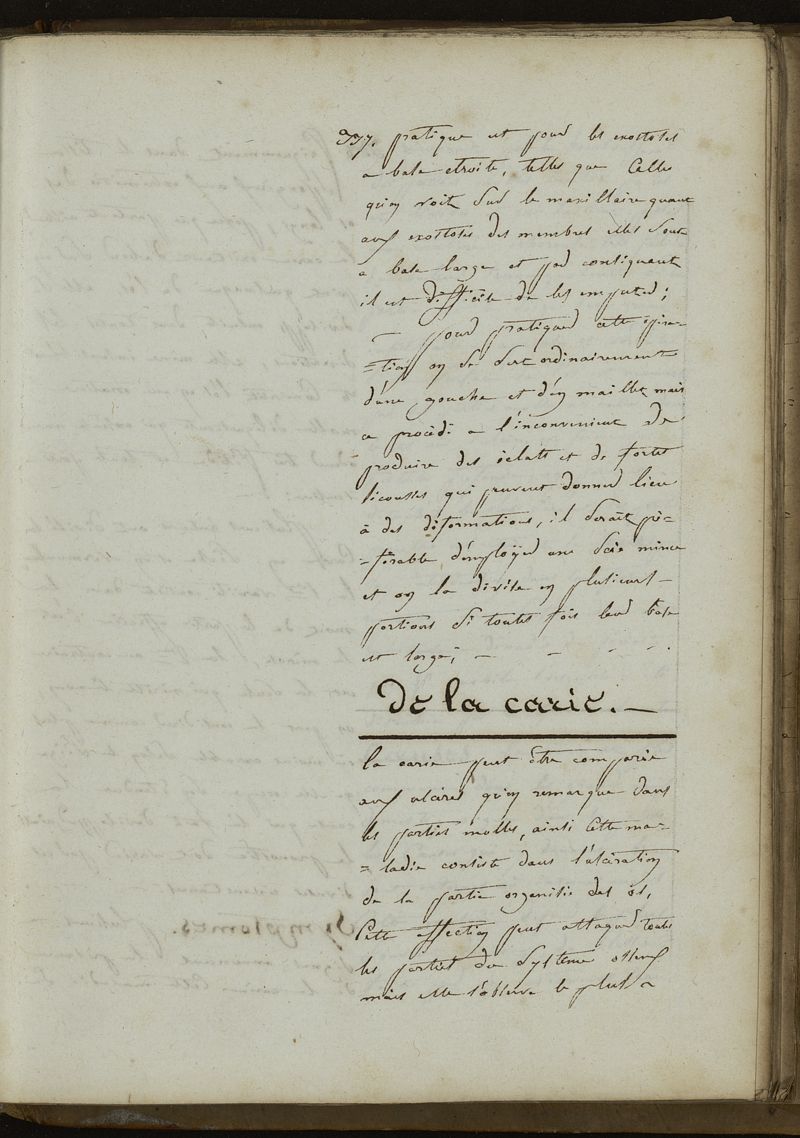 337. pratique est pour les exostoses
a base etroite, telles que Celles
qu'on voit Sur le maxillaire quant
aux exostoses des membres elles Sont
a base large et par consequent
il est difficile de les emputer;
— pour pratiquer cette opera-
=tion on Se Sert ordinairement
d'une gouche et d'un maillet mais
ce procédé a l'inconvenient de
produire des éclats et de fortes
Secousses qui peuvent donner lieu
à des déformations, il Serait pré-
=ferable d'employer une Scie mince
et on la divise en plusieurs
portions Si toutes fois leur base
est large; —
De la carie. —
la carie peut être comparée
aux ulcéres qu'on remarque dans
les parties molles, ainsi Cette ma-
=ladie consiste dans l'ulcération
de la partie organisée des os,
Cette affection peut attaquer toutes
les parties du Systême osseux
mais elle s'observe le plus